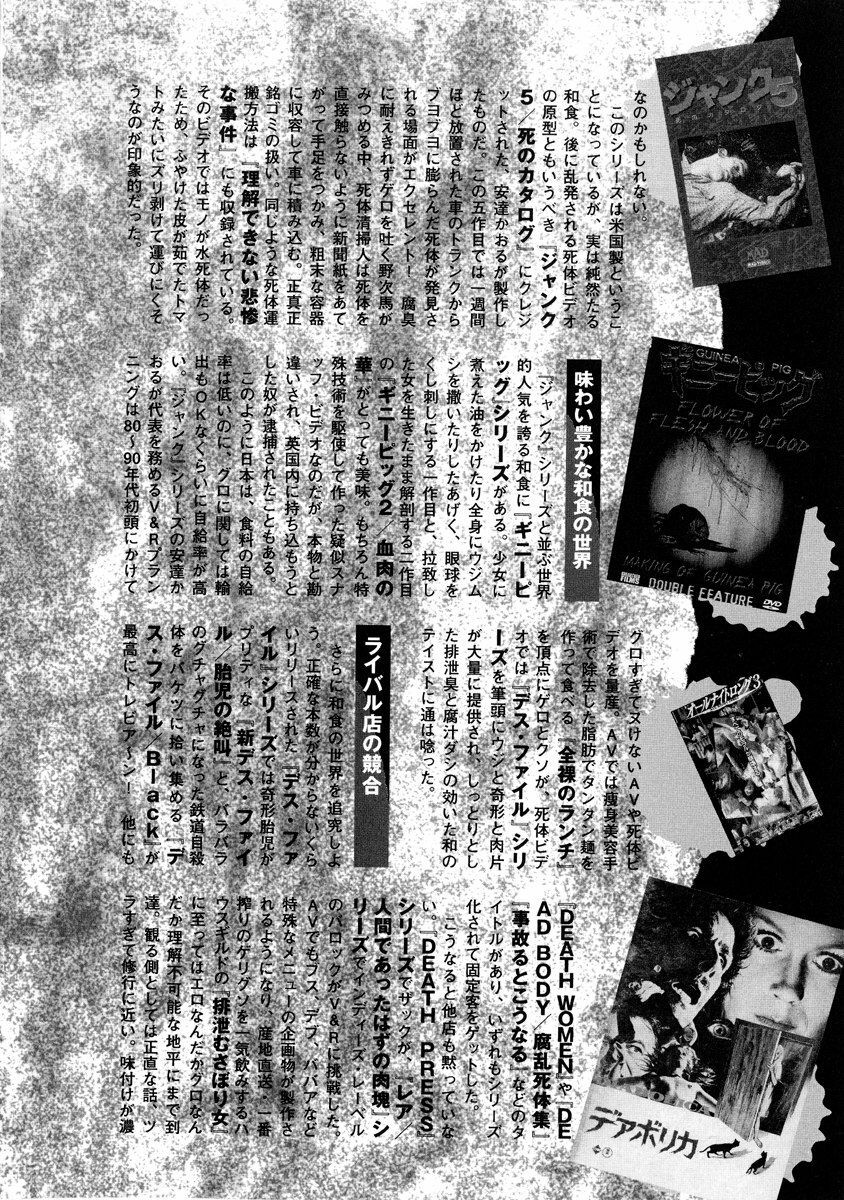 なのかもしれない。
　このシリーズは米国製というこ
とになっているが、実は純然たる
和食。後に乱発される死体ビデオ
の原型ともいうべき『ジャンク
5／死のカタログ』にクレジ
ットされた、安達かおるが製作し
たものだ。この五作目では一週間
ほど放置された車のトランクから
ブヨブヨに膨らんだ死体が発見さ
れる場面がエクセレント！　腐臭
に耐えきれずゲロを吐く野次馬が
みつめる中、死体清掃人は死体を
直接触らないように新聞紙をあて
がって手足をつかみ、粗末な容器
に収容して車に積み込む。正真正
銘ゴミの扱い。同じような死体運
搬方法は『理解できない悲惨
な事件』にも収録されている。
そのビデオではモノが水死体だっ
たため、ふやけた皮が茹でたトマ
トみたいにズリ剥けて運びにくそ
うなのが印象的だった。
味わい豊かな和食の世界
　『ジャンク』シリーズと並ぶ世界
的人気を誇る和食に『ギニーピ
ッグ』シリーズがある。少女に
煮えた油をかけたり全身にウジム
シを撒いたりしたあげく、眼球を
くし刺しにする一作目と、拉致し
た女を生きたまま解剖する二作目
の『ギニーピッグ2／血肉の
華』がとっても美味。もちろん特
殊技術を駆使して作った疑似スナ
ッフ・ビデオなのだが、本物と勘
違いされ、英国内に持ち込もうと
した奴が逮捕されたこともある。
　このように日本は、食料の自給
率は低いのに、グロに関しては輸
出もOKなくらいに自給率が高
い。『ジャンク』シリーズの安達か
おるが代表を務めるV&Rプラン
ニングは80〜90年代初頭にかけて
グロすぎてヌけないAVや死体ビ
デオを量産。AVでは痩身美容手
術で除去した脂肪でタンタン麺を
作って食べる『全裸のランチ』
を頂点にゲロとクソが、死体ビデ
オでは『デス・ファイル』シリ
ーズを筆頭にウジと奇形と肉片
が大量に提供され、しっとりとし
た排泄臭と腐汁ダシの効いた和の
テイストに通は唸った。
ライバル店の競合
　さらに和食の世界を追究しよ
う。正確な本数が分からないくら
いリリースされた『デス・ファ
イル』シリーズでは奇形胎児が
プリティな『新デス・ファイ
ル／胎児の絶叫』と、バラバラ
のグチャグチャになった鉄道自殺
体をバケツに拾い集める『デ
ス・ファイル／Black』が
最高にトレビア〜ン！　他にも
『DEATH WOMEN』や『DE
AD BODY／腐乱死体集』
『事故るとこうなる』などのタ
イトルがあり、いずれもシリーズ
化されて固定客をゲットした。
　こうなると他店も黙っていな
い。『DEATH PRESS』
シリーズでザックが、『レア／
人間であったはずの肉塊』シ
リーズでインディーズ・レーベル
のバロックがV&Rに挑戦した。
AVでもブス、デブ、ババアなど
特殊なメニューの企画物が製作さ
れるようになり、産地直送・一番
搾りのゲリグソを一気飲みするハ
ウスギルドの『排泄むさぼり女』
に至ってはエロなんだかグロなん
だか理解不可能な地平にまで到
達。観る側としては正直な話、ツ
ラすぎて修行に近い。味付けが濃
ジャンク5
GUINEA PIG
ギニーピッグ
FLOWER OF
FLESH AND BLOOD
MAKING OF GUINEA PIG
DOUBLE FEATURE
DVD
オールナイトロング3
デアボリカ